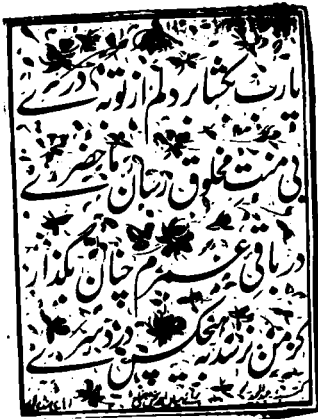 یارب بگشا بر دلم از توبه دری
بی منت مخلوق رسان ما حضری
در باقی عمرم چنان
کز من نرسد بهیچکس دردسری